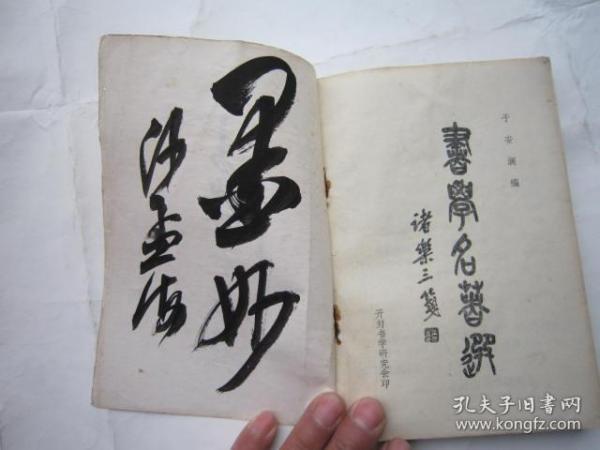 墨妙
沙孟海
于安澜编
書學名著選
诸樂三篆
开封书学研究会印
孔夫子旧书网
www.kongfz.com